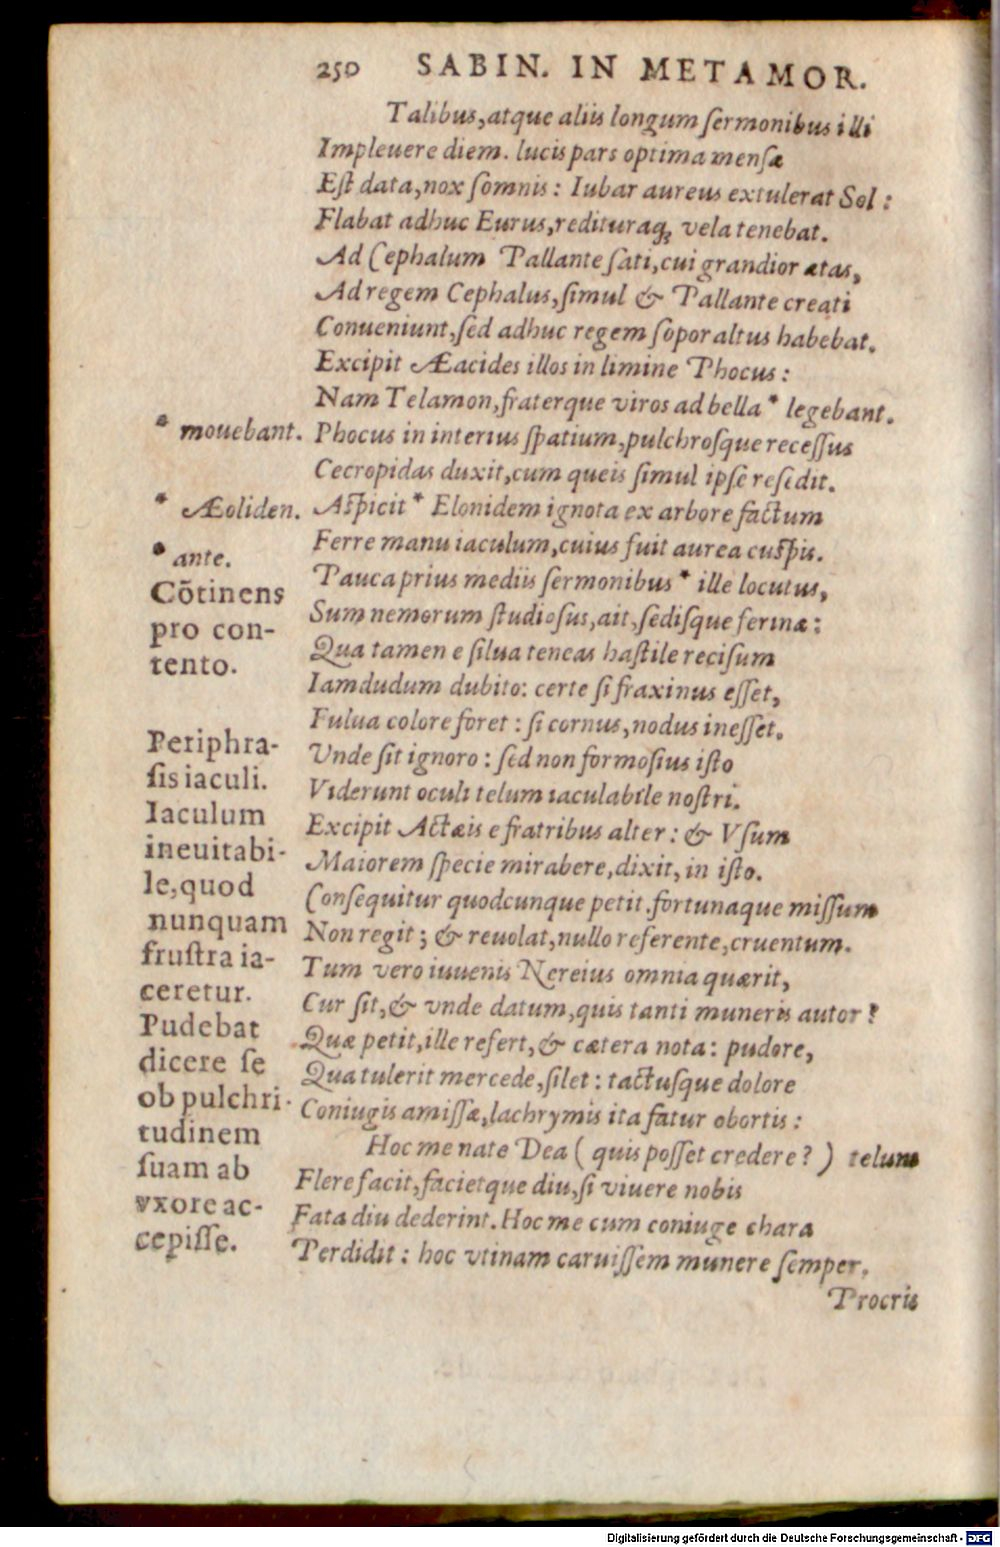 250 SABIN. IN METAMOR.
Talibus, atque aliis longum ſermonibus illi
Impleuere diem. lucis pars optima menſæ
Eſt data, nox ſomnis: Iubar aureus extulerat Sol:
Flabat adhuc Eurus, redituraq; vela tenebat.
Ad Cephalum Pallante ſati, cui grandior ætas,
Ad regem Cephalus, ſimul & Pallante creati
Conueniunt, ſed adhuc regem ſopor altus habebat.
Excipit Æacides illos in limine Phocus:
Nam Telamon, fraterque viros ad bella * legebant.
* mouebant.
Phocus in interius ſpatium, pulchroſque receſſus
Cecropidas duxit, cum queis ſimul ipſe reſedit.
* Æoliden.
Aſpicit * Elonidem ignota ex arbore factum
Ferre manu iaculum, cuius fuit aurea cuſpis.
* ante.
Pauca prius mediis ſermonibus * ille locutus,
Sum nemorum ſtudioſus, ait, ſediſque ferinæ:
Qua tamen e ſilua teneas haſtile reciſum
Iamdudum dubito: certe ſi fraxinus eſſet,
Fulua colore foret: ſi cornus, nodus ineſſet.
Vnde ſit ignoro: ſed non formoſius iſto
Viderunt oculi telum iaculabile noſtri.
Excipit Actæis e fratribus alter: & Vſum
Maiorem ſpecie mirabere, dixit, in iſto.
Conſequitur quodcunque petit. fortunaque miſſum
Non regit; & reuolat, nullo referente, cruentum.
Tum vero iuuenis Nereius omnia quærit,
Cur ſit, & vnde datum, quis tanti muneris autor?
Quæ petit, ille refert, & cætera nota: pudore,
Qua tulerit mercede, ſilet: tactuſque dolore
Coniugis amiſſæ, lachrymis ita fatur obortis:
Hoc me nate Dea (quis poſſet credere?) telum
Flere facit, facietque diu, ſi viuere nobis
Fata diu dederint. Hoc me cum coniuge chara
Perdidit: hoc vtinam caruiſſem munere ſemper.
Procris
Cõtinens
pro con-
tento.
Periphra-
ſis iaculi.
Iaculum
ineuitabi-
le, quod
nunquam
fruſtra ia-
ceretur.
Pudebat
dicere ſe
ob pulchri-
tudinem
ſuam ab
vxore ac-
cepiſſe.
Digitalisierung gefördert durch die Deutsche Forschungsgemeinschaft - DFG